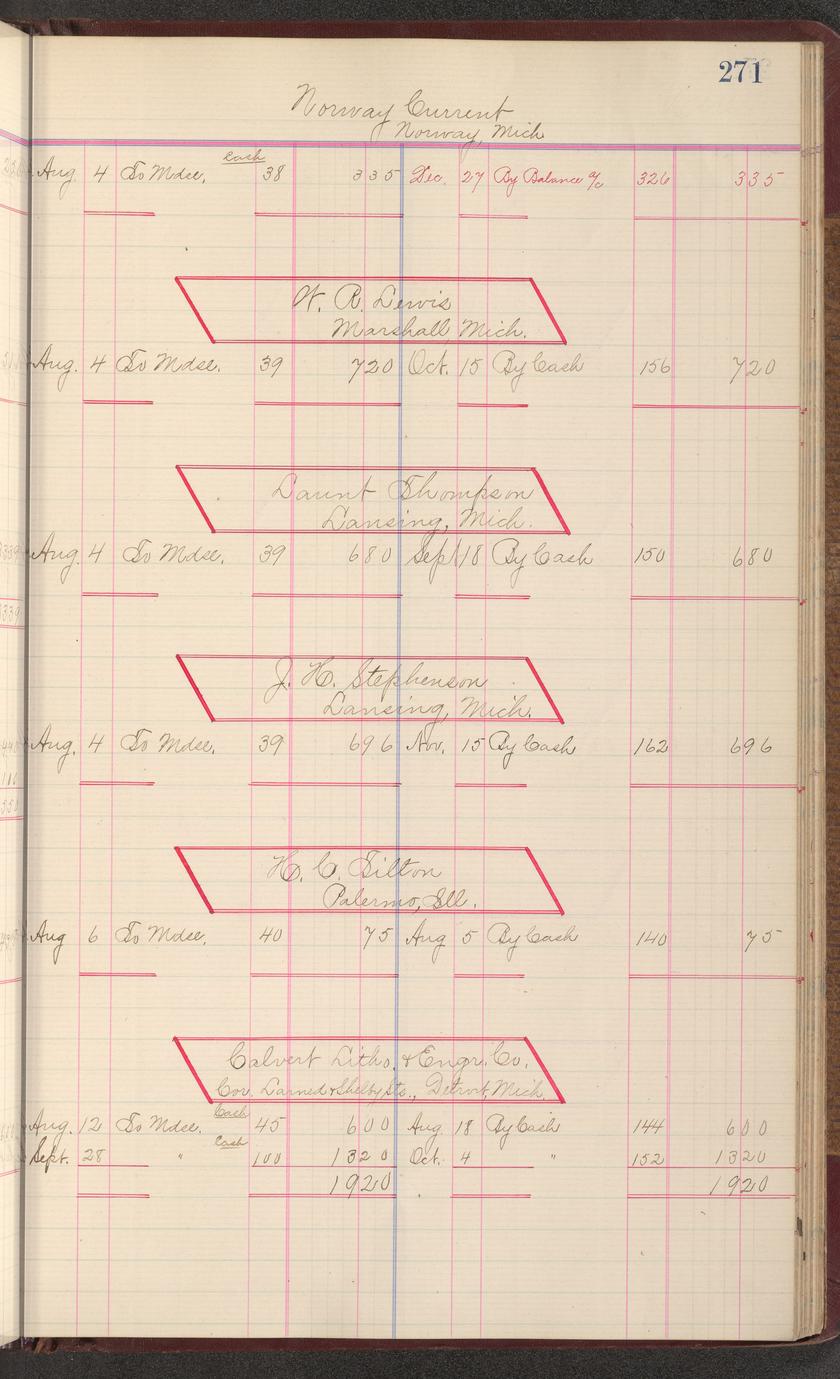 271
Norway Current
Norway, Mich
Cash
Aug. 4 To Mdse. 38 335 Dec. 27 By Balance a/c 326 335
W. R. Lewis
Marshall, Mich.
Aug. 4 To Mdse. 39 720 Oct. 15 By Cash 156 720
Launt Thompson
Lansing, Mich.
Aug. 4 To Mdse. 39 680 Sept 18 By Cash 150 680
J. H. Stephenson
Lansing, Mich.
Aug. 4 To Mdse. 39 696 Nov. 15 By Cash 162 696
H. C. Tilton
Palermo, Ill.
Aug 6 To Mdse. 40 75 Aug 5 By Cash 140 75
Calvert Litho. & Engr. Co.
Cor. Larned & Shelby sts., Detroit, Mich.
Cash
Aug. 12 To Mdse. 45 600 Aug 18 By Cash 144 600
Cash
Sept. 28 " 100 1320 Oct. 4 " 152 1320
1920 1920